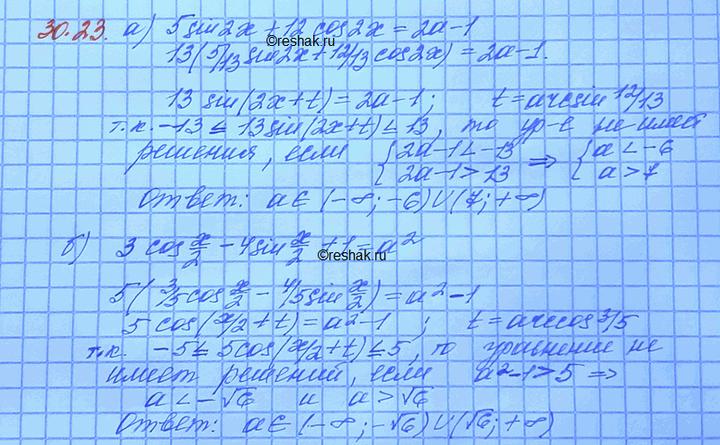 30.23. а) 5 sin 2x + 12 cos 2x = 2a - 1
©reshak.ru
13 (5/13 sin 2x + 12/13 cos 2x) = 2a - 1.
13 sin(2x + t) = 2a - 1 ; t = arcsin 12/13
т.к. -13 ≤ 13 sin(2x + t) ≤ 13, то ур-е не имеет
решения, если { 2a - 1 < -13 ⇒ { a < -6
{ 2a - 1 > 13 { a > 7
Ответ: a ∈ (-∞; -6) ∪ (7; +∞)
б) 3 cos x/2 - 4 sin x/2 + 1 = a²
©reshak.ru
5 (3/5 cos x/2 - 4/5 sin x/2) = a² - 1
5 cos (x/2 + t) = a² - 1 ; t = arccos 3/5
т.к. -5 ≤ 5 cos (x/2 + t) ≤ 5, то уравнение не
имеет решений, если a² - 1 > 5 ⇒
a < -√6 и a > √6
Ответ: a ∈ (-∞; -√6) ∪ (√6; +∞)